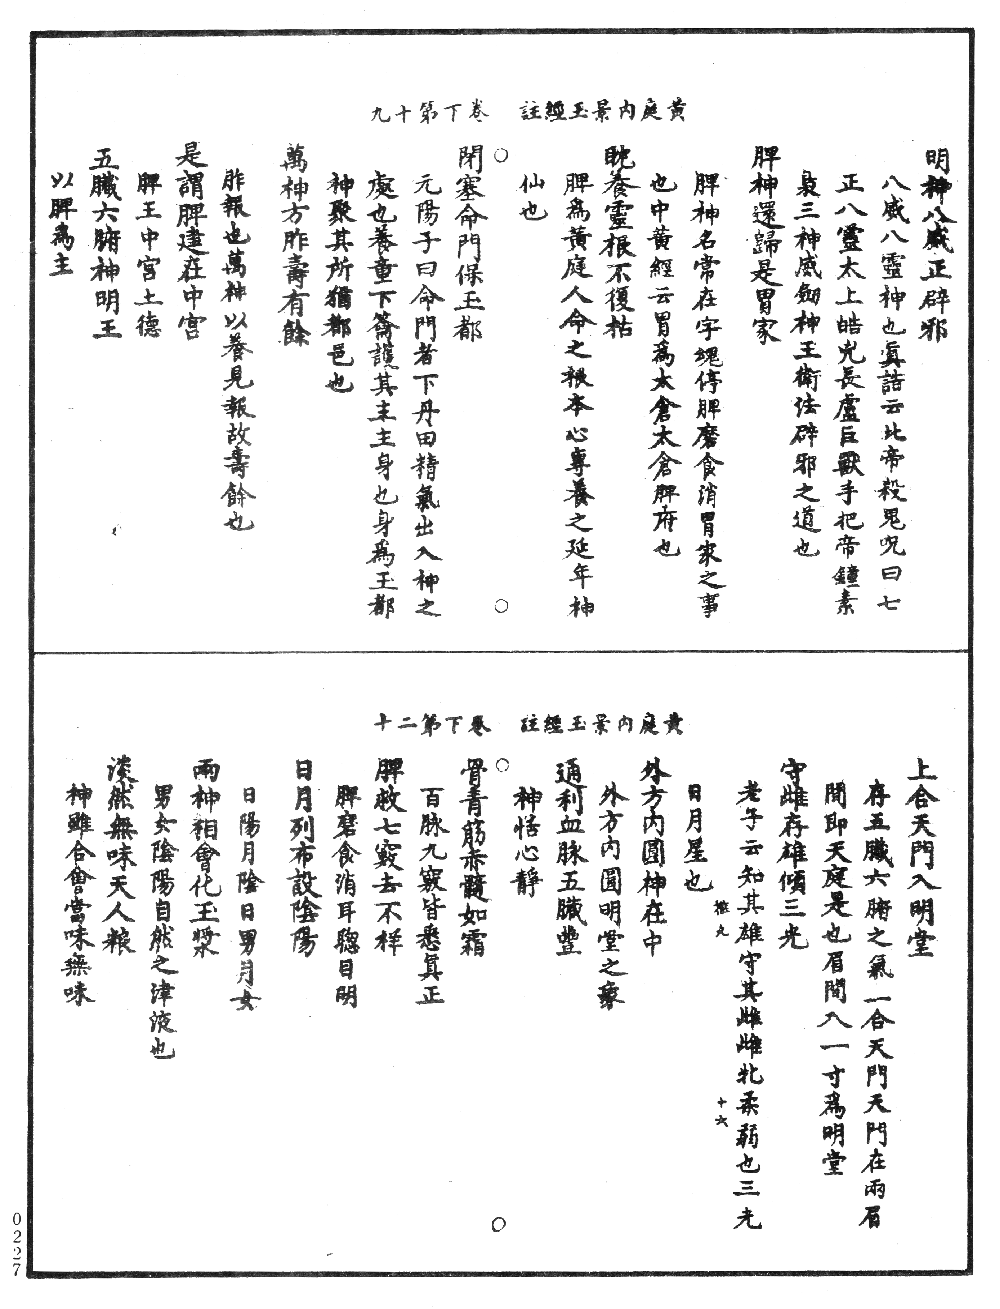 黃庭內景玉經註　卷下第十九
明神八威正辟邪
八威八靈神也眞誥云北帝殺鬼呪曰七
正八靈太上皓兇長盧巨獸手把帝鐘素
梟三神威劒神王衛法辟邪之道也
脾神還歸是胃家
脾神名常在字魂停脾磨食消胃家之事
也中黃經云胃爲太倉太倉脾府也
耽養靈根不復枯
脾爲黃庭人命之根本心專養之延年神
仙也
閉塞命門保玉都
元陽子曰命門者下丹田精氣出入神之
處也養童下篇護其末主身也身爲玉都
神聚其所猶都邑也
萬神方胙壽有餘
胙報也萬神以養見報故壽餘也
是謂脾建在中宮
脾王中宮土德
五臟六腑神明王
以脾爲主
黃庭內景玉經註　卷下第二十
上合天門入明堂
存五臟六腑之氣一合天門天門在兩眉
間即天庭是也眉間入一寸爲明堂
守雌存雄傾三光
老子云知其雄守其雌雌牝柔弱也三光
日月星也
推九　十六
外方內圓神在中
外方內圓明堂之象
通利血脉五臟豐
神恬心靜
骨青筋赤髓如霜
百脉九竅皆悉眞正
脾救七竅去不祥
脾磨食消耳聦目明
日月列布設陰陽
日陽月陰日男月女
兩神相會化玉漿
男女陰陽自然之津液也
淡然無味天人粮
神雖合會當味無味
0227